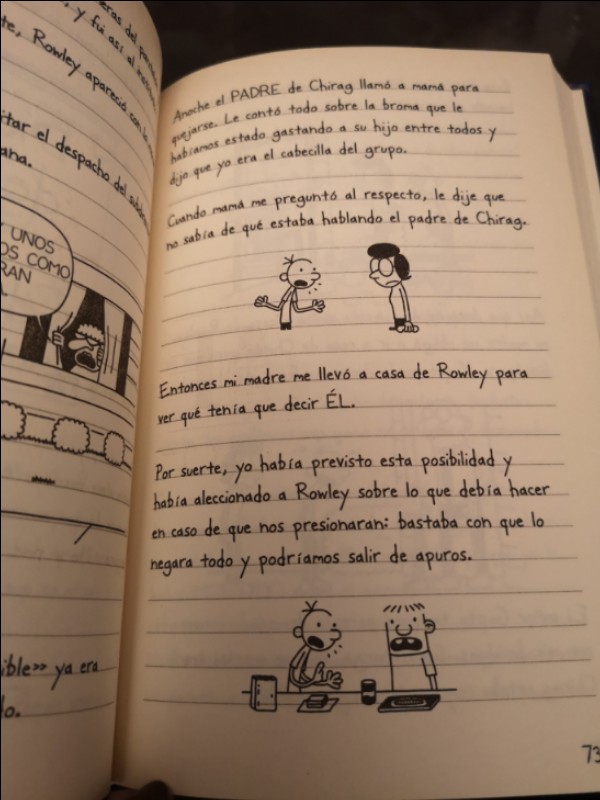 eras del
y fui así al
te, Rowley apareció con
itar el despacho del
ana.
UNOS
OS COMO
RAN
ible» ya era
lo.
Anoche el PADRE de Chirag llamó a mamá para
quejarse. Le contó todo sobre la broma que le
habíamos estado gastando a su hijo entre todos y
dijo que yo era el cabecilla del grupo.
Cuando mamá me preguntó al respecto, le dije que
no sabía de qué estaba hablando el padre de Chirag.
Entonces mi madre me llevó a casa de Rowley para
ver qué tenía que decir ÉL.
Por suerte, yo había previsto esta posibilidad y
había aleccionado a Rowley sobre lo que debía hacer
en caso de que nos presionaran: bastaba con que lo
negara todo y podríamos salir de apuros.
73